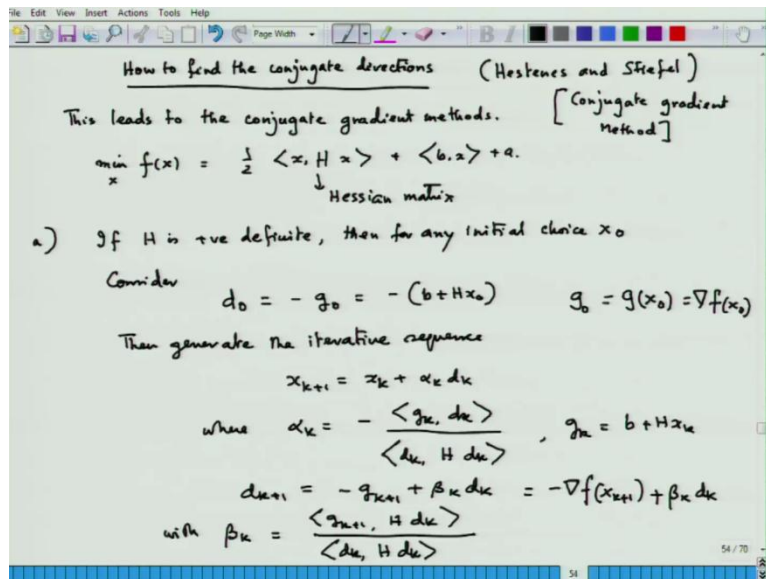 File Edit View Insert Actions Tools Help
Page Width
How to find the conjugate directions (Hestenes and Stiefel)
This leads to the conjugate gradient methods. [Conjugate gradient Method]
min_x f(x) = 1/2 <x, H x> + <b, x> + a.
↓
Hessian matrix
a) If H is +ve definite, then for any initial choice x₀
Consider
d₀ = - g₀ = - (b + Hx₀) g₀ = g(x₀) = ∇f(x₀)
Then generate the iterative sequence
xₖ₊₁ = xₖ + αₖ dₖ
where αₖ = - <gₖ, dₖ> / <dₖ, H dₖ> , gₖ = b + Hxₖ
dₖ₊₁ = - gₖ₊₁ + βₖ dₖ = -∇f(xₖ₊₁) + βₖ dₖ
with βₖ = <gₖ₊₁, H dₖ> / <dₖ, H dₖ>
54 / 70
54